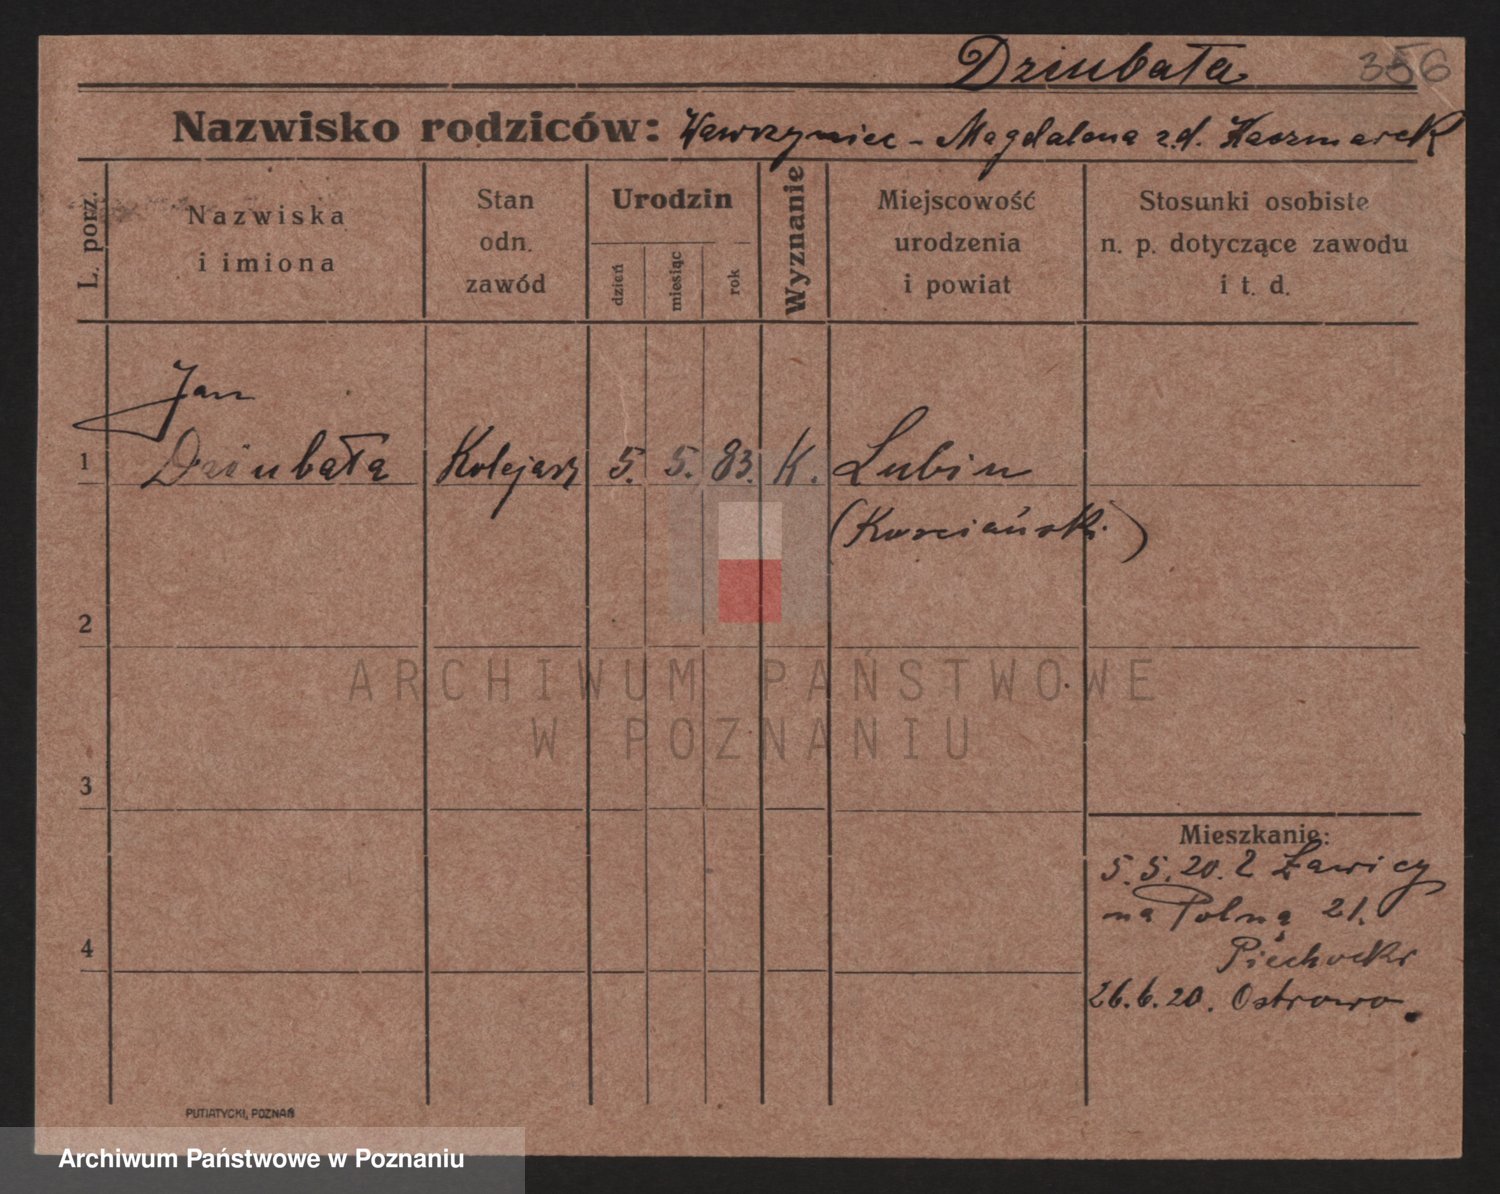 Dziubała 356
Nazwisko rodziców: Wawrzyniec - Magdalena z.d. Kaczmarek
L. porz.
Nazwiska
i imiona
Stan
odn.
zawód
Urodzin
dzień
miesiąc
rok
Wyznanie
Miejscowość
urodzenia
i powiat
Stosunki osobiste
n. p. dotyczące zawodu
i t. d.
Jan
1 Dziubała Kolejarz 5. 5. 83. K. Lubin
(Kościański)
2
ARCHIWUM PAŃSTWOWE
W POZNANIU
3
Mieszkanie:
5.5.20. z Ławicy
na Polną 21.
4
Piechocki
26.6.20. Ostrowo.
PUTIATYCKI, POZNAŃ
Archiwum Państwowe w Poznaniu